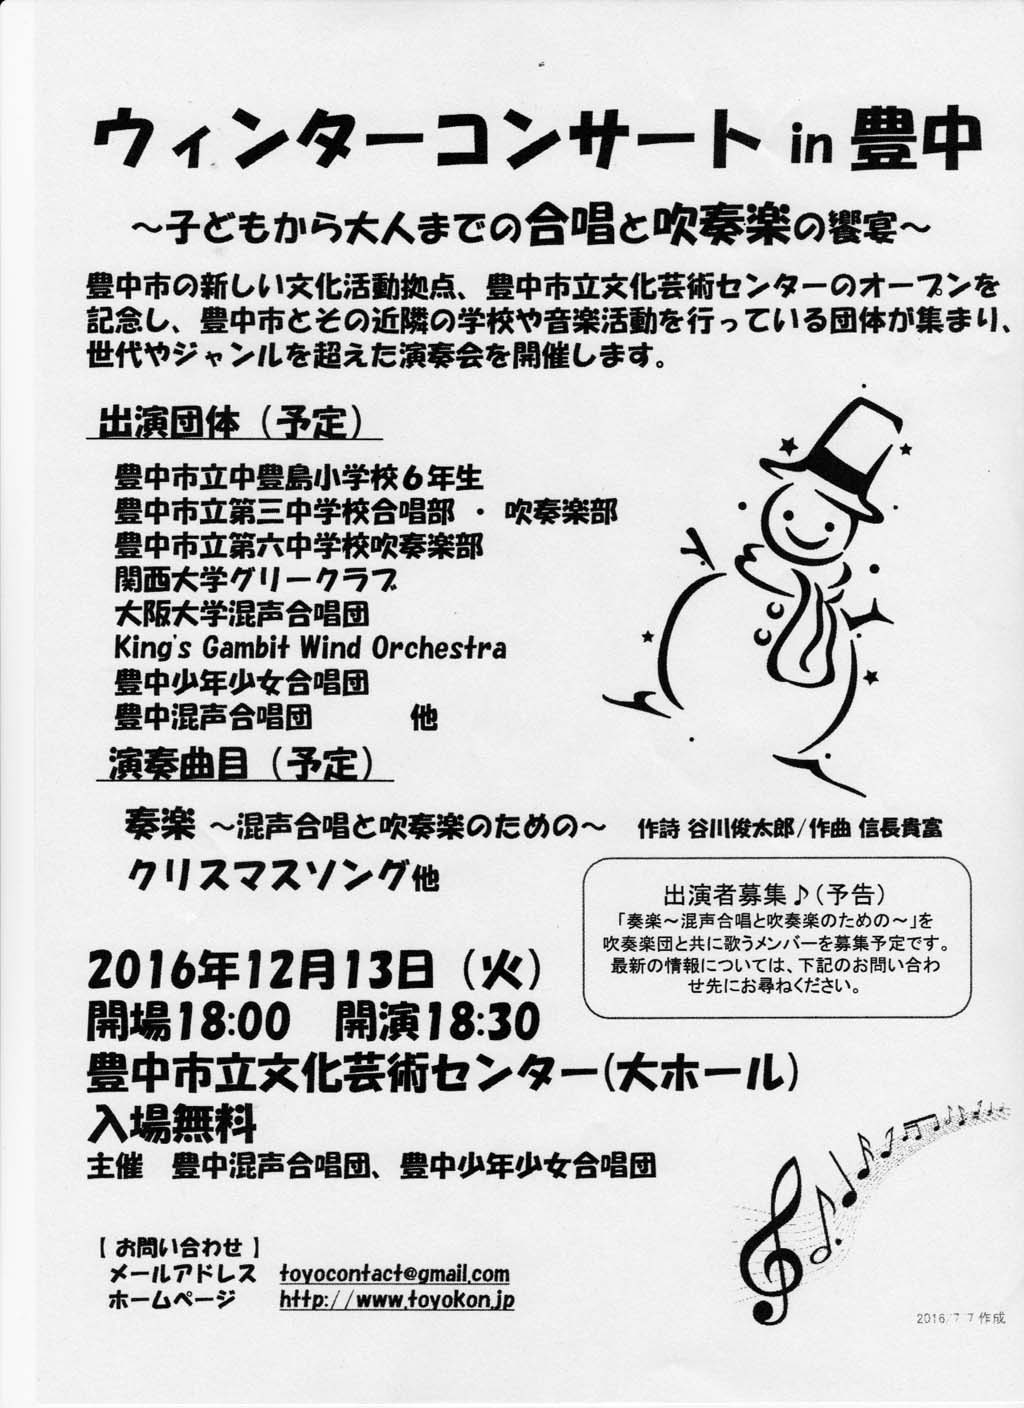 ウィンターコンサート in 豊中
～子どもから大人までの合唱と吹奏楽の饗宴～
豊中市の新しい文化活動拠点、豊中市立文化芸術センターのオープンを
記念し、豊中市とその近隣の学校や音楽活動を行っている団体が集まり、
世代やジャンルを超えた演奏会を開催します。
出演団体（予定）
豊中市立中豊島小学校６年生
豊中市立第三中学校合唱部 ・ 吹奏楽部
豊中市立第六中学校吹奏楽部
関西大学グリークラブ
大阪大学混声合唱団
King's Gambit Wind Orchestra
豊中少年少女合唱団
豊中混声合唱団 他
演奏曲目（予定）
奏楽 ～混声合唱と吹奏楽のための～ 作詩 谷川俊太郎/作曲 信長貴富
クリスマスソング他
出演者募集♪（予告）
「奏楽～混声合唱と吹奏楽のための～」を
吹奏楽団と共に歌うメンバーを募集予定です。
最新の情報については、下記のお問い合わ
せ先にお尋ねください。
2016年12月13日（火）
開場18:00 開演18:30
豊中市立文化芸術センター(大ホール)
入場無料
主催 豊中混声合唱団、豊中少年少女合唱団
【 お問い合わせ 】
メールアドレス toyocontact@gmail.com
ホームページ http://www.toyokon.jp
2016/7/7 作成